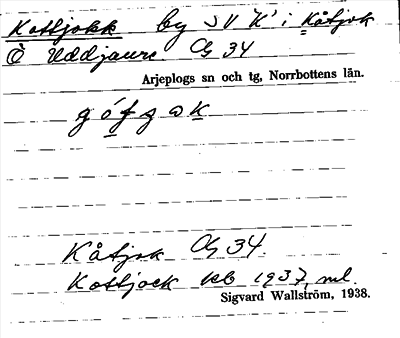 Kottjokk by SV "K" i Kåtjok
Ö Uddjaure Cg 34
Arjeplogs sn och tg, Norrbottens län.
Kåtjok Cg 34.
Kottjock kb 1937, ml.
Sigvard Wallström, 1938.